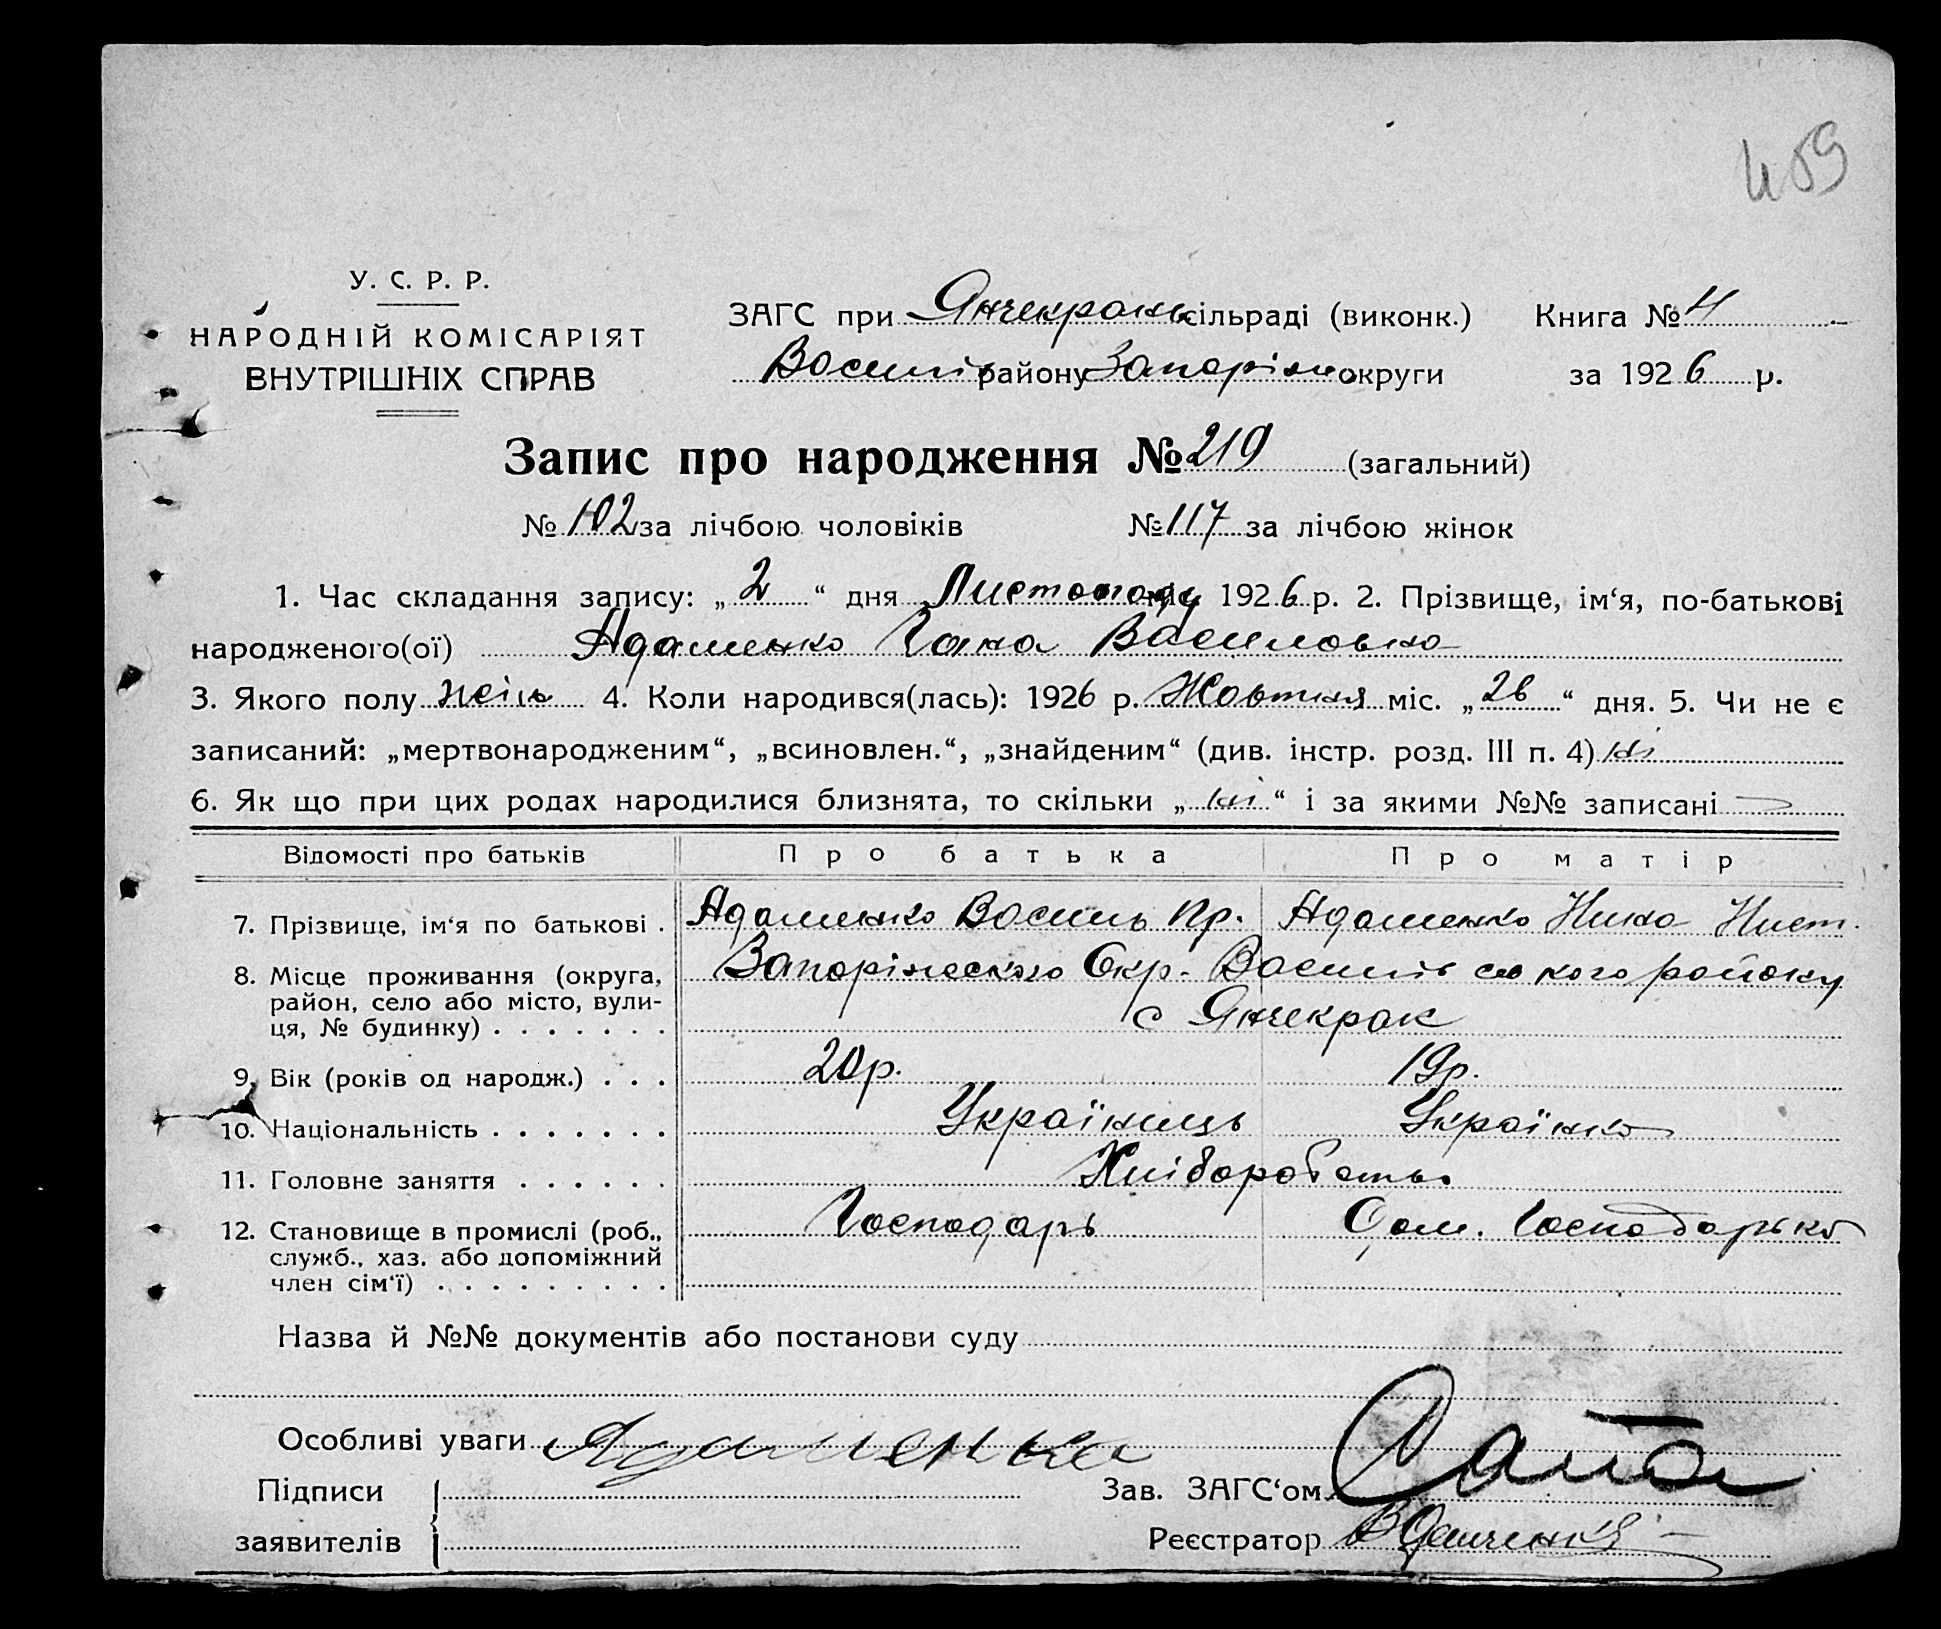 459
У. С. Р. Р.
НАРОДНІЙ КОМІСАРІЯТ
ВНУТРІШНІХ СПРАВ
ЗАГС при Янчекракс сільраді (виконк.) Книга № 4
Василів району Запоріж округи за 1926 р.
Запис про народження № 219 (загальний)
№ 102 за лічбою чоловіків № 117 за лічбою жінок
1. Час складання запису: „ 2 “ дня Листопаду 1926 р. 2. Прізвище, ім‘я, по-батькові
народженого(ої) Адаменко Гана Василовна
3. Якого полу жін 4. Коли народився(лась): 1926 р. Жовтня міс. „ 26 “ дня. 5. Чи не є
записаний: „мертвонародженим“, „всиновлен.“, „знайденим“ (див. інстр. розд. III п. 4) ні
6. Як що при цих родах народилися близнята, то скільки „ ні “ і за якими №№ записані
Відомості про батьків Про батька Про матір
7. Прізвище, ім‘я по батькові . Адаменко Василь Пр. Адаменко Нина Нист.
8. Місце проживання (округа, Запоріжского Окр. Василівського району
район, село або місто, вули- с Янчекрак
ця, № будинку) . . . . . . .
9. Вік (років од народж.) . . . 20р. 19р.
10. Національність . . . . . . . Україниць Українка
11. Головне заняття . . . . . . Хліборобство
12. Становище в промислі (роб., Господарь Дом. Господарька
служб., хаз. або допоміжний
член сім‘ї) . . . . . . . . .
Назва й №№ документів або постанови суду
Особливі уваги Адаменка
Підписи Зав. ЗАГС‘ом
заявителів Реєстратор В Демченко